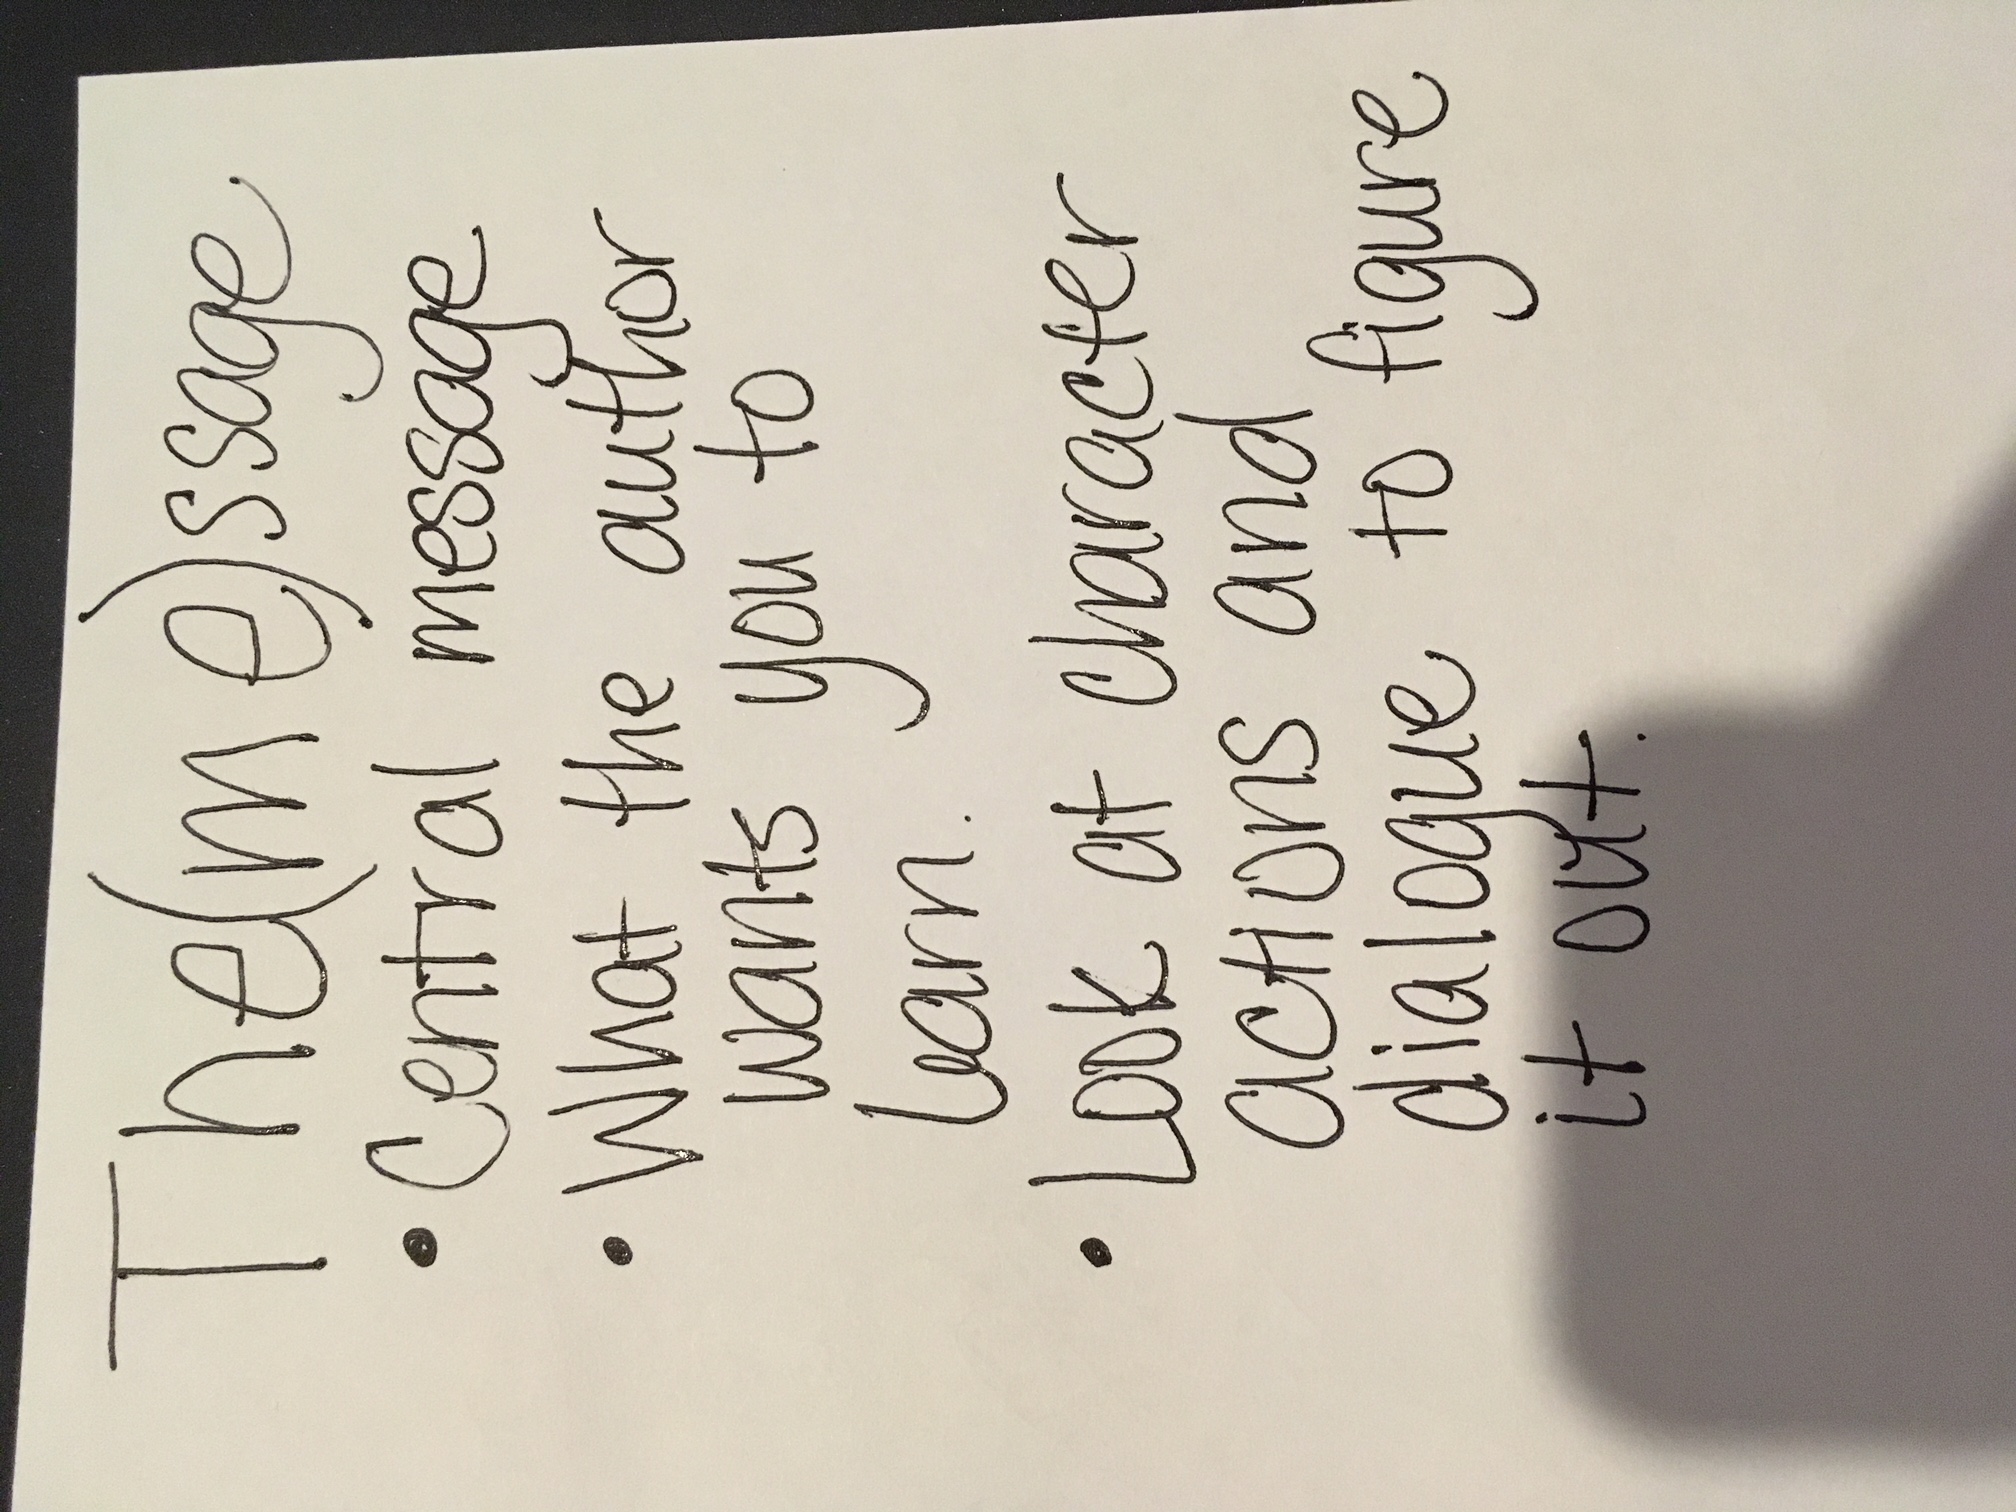 The(me)ssage
• Central message
• What the author
wants you to
learn.
• Look at character
actions and
dialogue to figure
it out.